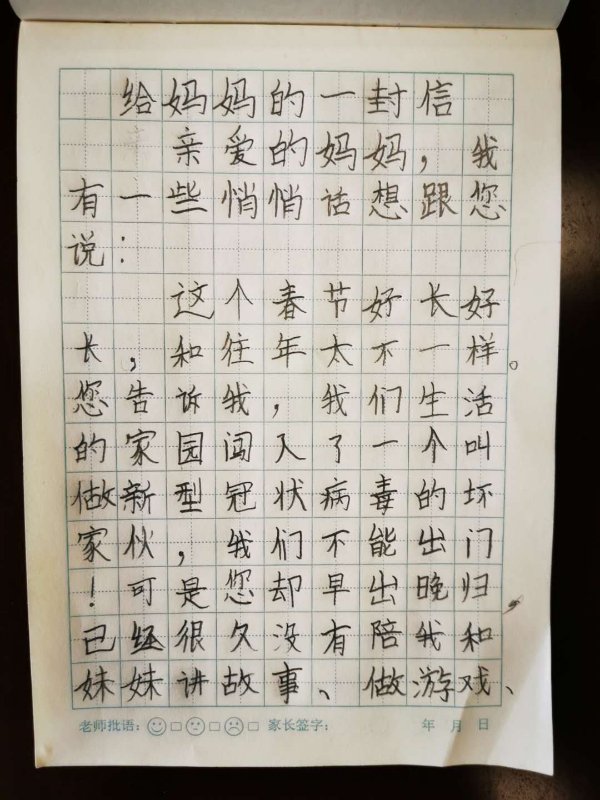 给妈妈的一封信
亲爱的妈妈，我
有一些悄悄话想跟您
说：
这个春节好长好
长，和往年太不一样。
您告诉我，我们生活
的家园闯入了一个叫
做新型冠状病毒的坏
家伙，我们不能出门
！可是您却早出晚归，
已经很久没有陪我和
妹妹讲故事、做游戏、
老师批语：□□□ 家长签字： 年 月 日